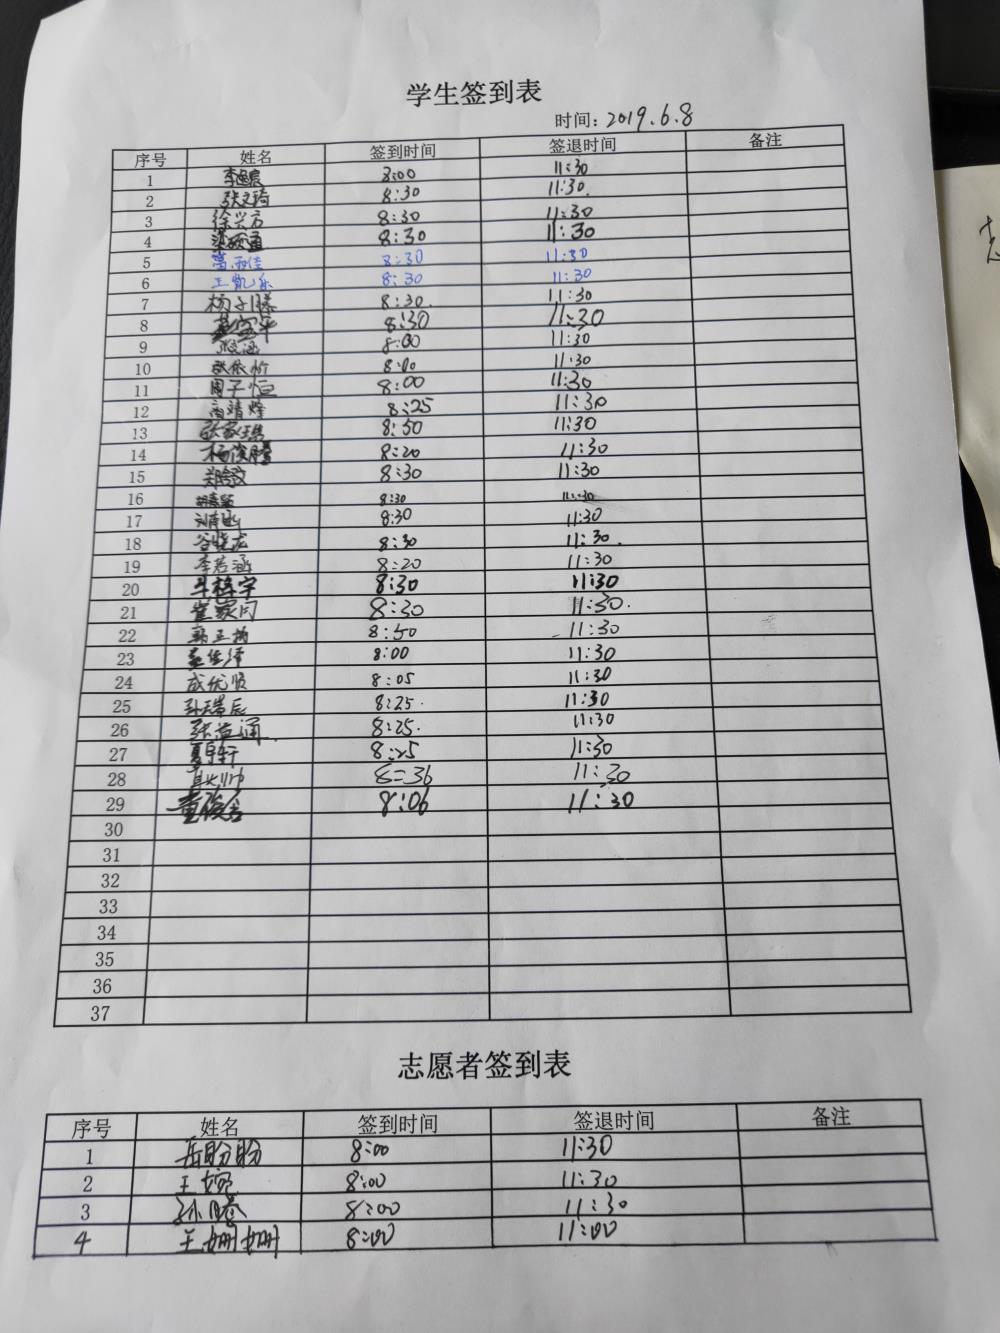 学生签到表
时间：2019.6.8
序号 姓名 签到时间 签退时间 备注
1 8:00 11:30
2 张文琦 8:30 11:30
3 徐兴方 8:30 11:30
4 8:30 11:30
5 8:30 11:30
6 王凯乐 8:30 11:30
7 杨子腾 8:30. 11:30
8 8:30 11:30
9 8:00 11:30
10 张依忻 8:00 11:30
11 周子恒 8:00 11:30
12 高靖烽 8:25 11:30
13 8:50 11:30
14 杨浚腾 8:20 11:30
15 8:30 11:30
16 8:30 11:30
17 8:30 11:30
18 谷晓龙 8:30 11:30.
19 李若涵 8:20 11:30
20 8:30 11:30
21 8:30 11:30.
22 8:50 11:30
23 8:00 11:30
24 成优顺 8:05 11:30
25 孙瑞辰 8:25. 11:30
26 8:25. 11:30
27 夏宇轩 8:25 11:30
28 8:36 11:30
29 8:06 11:30
30
31
32
33
34
35
36
37
志愿者签到表
序号 姓名 签到时间 签退时间 备注
1 岳盼盼 8:00 11:30
2 王婉 8:00 11:30
3 8:00 11:30
4 王姗姗 8:00 11:00
志